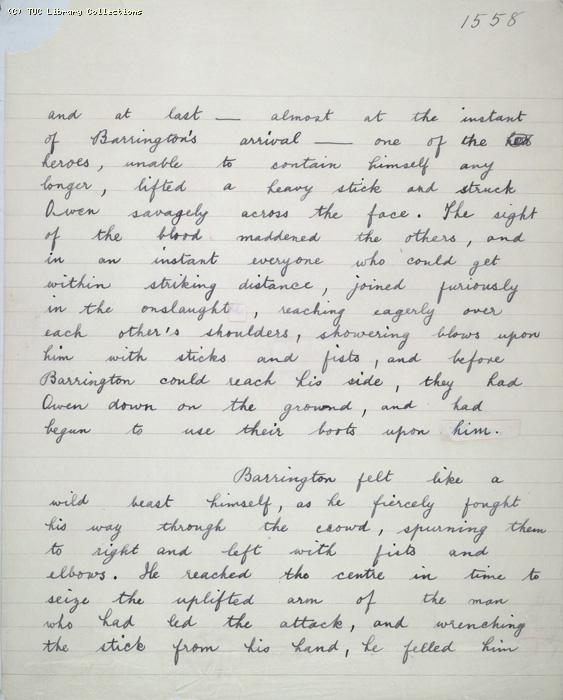 (C) TUC Library Collections
1558
and at last — almost at the instant
of Barrington's arrival — one of the
heroes, unable to contain himself any
longer, lifted a heavy stick and struck
Owen savagely across the face. The sight
of the blood maddened the others, and
in an instant everyone who could get
within striking distance, joined furiously
in the onslaught, reaching eagerly over
each other's shoulders, showering blows upon
him with sticks and fists, and before
Barrington could reach his side, they had
Owen down on the ground, and had
begun to use their boots upon him.
Barrington felt like a
wild beast himself, as he fiercely fought
his way through the crowd, spurning them
to right and left with fists and
elbows. He reached the centre in time to
seize the uplifted arm of the man
who had led the attack, and wrenching
the stick from his hand, he felled him